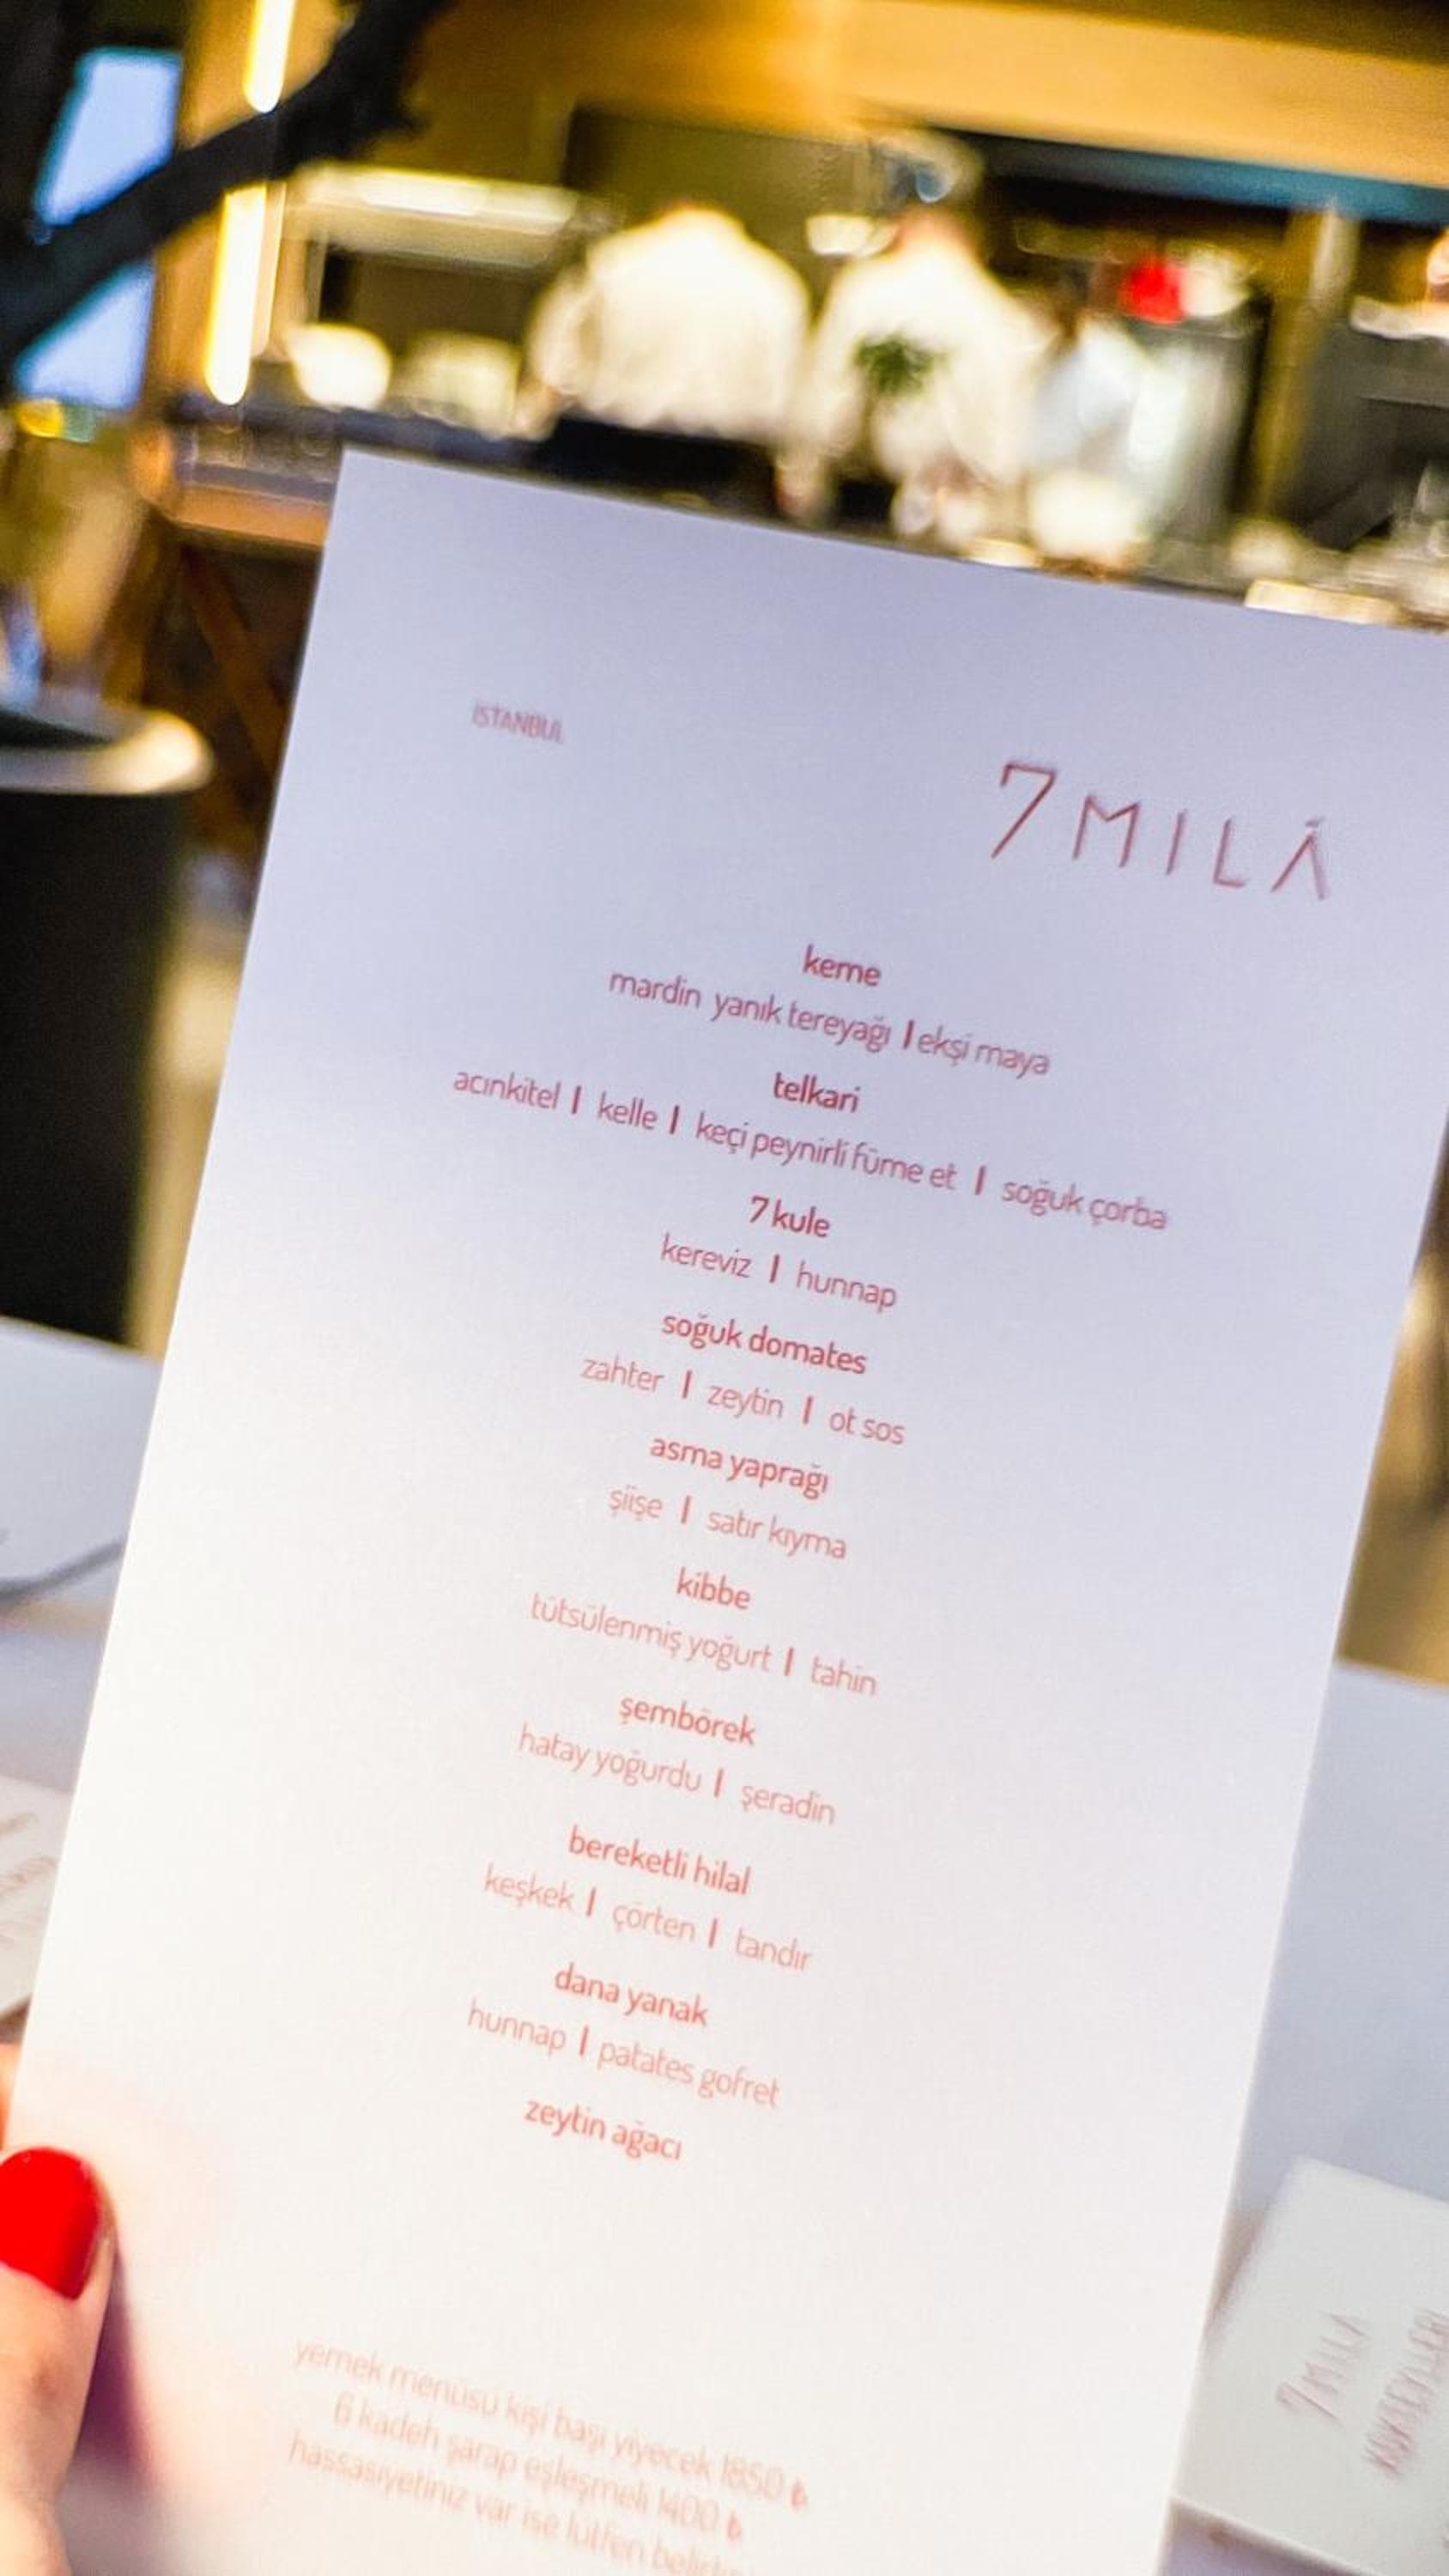 ISTANBUL
7 MILÂ
keme
mardin yanık tereyağı | ekşi maya
telkari
acınkitel | kelle | keçi peynirli füme et | soğuk çorba
7 kule
kereviz | hunnap
soğuk domates
zahter | zeytin | ot sos
asma yaprağı
şiişe | satır kıyma
kibbe
tütsülenmiş yoğurt | tahin
şembörek
hatay yoğurdu | şeradin
bereketli hilal
keşkek | çörten | tandır
dana yanak
hunnap | patates gofret
zeytin ağacı
yemek menüsü kişi başı yiyecek 1850 ₺
6 kadeh şarap eşleşmeli 1400 ₺
hassasiyetiniz var ise lütfen
7 MILÂ